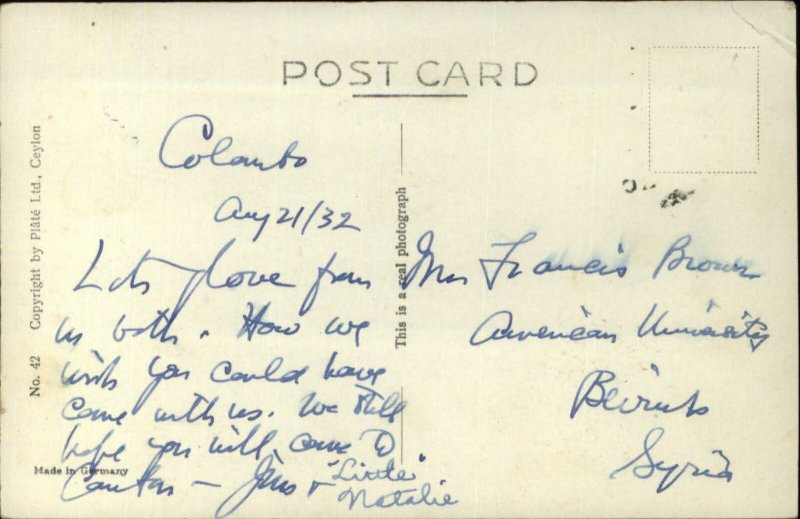 POST CARD
Colombo
Aug 21/32
Lots of love from
us both. How we
wish you could have
come with us. We still
hope you will come to
Canton - Jim & "Little"
Natalie
Francis Brown
American University
Beirut
Syria
This is a real photograph
No. 42 Copyright by Plâté Ltd., Ceylon
Made in Germany